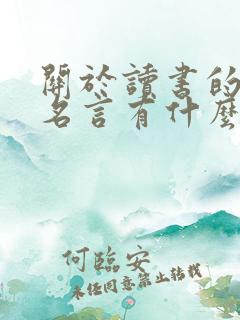 關於讀書的
名言有什麼
何臨安
未经同意禁止转载